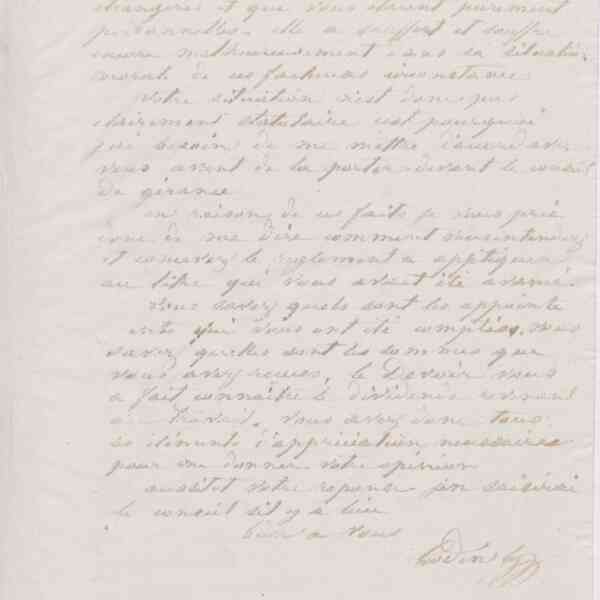 étrangères et que vous étaient purement
personnelles. elle a souffert et souffre
encore malheureusement dans sa situation
morale de ces facheuses circonstances
Votre situation n'est donc pas
clairement statutaire c'est pourquoi
j'ai besoin de me mettre d'accord avec
vous avant de la porter devant le conseil
de gérance
en raison de ces faits je vous prie
donc de me dire comment vous entendez
et concevez le règlement a appliquer
au titre qui vous avait été avancé.
vous savez quels sont les appointe
ments qui vous ont été comptées, vous
savez quelles sont les sommes que
vous avez reçues, le Devoir vous
a fait connaître le dividende revenant
au travail. vous avez donc tous
les éléments d'appréciation nécessaires
pour me donner votre opinion
aussitot votre reponse j'en saisirai
le conseil s'il y a lieu
bien a vous
Godin